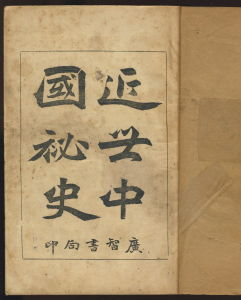 近世中
國祕史
廣智書局印